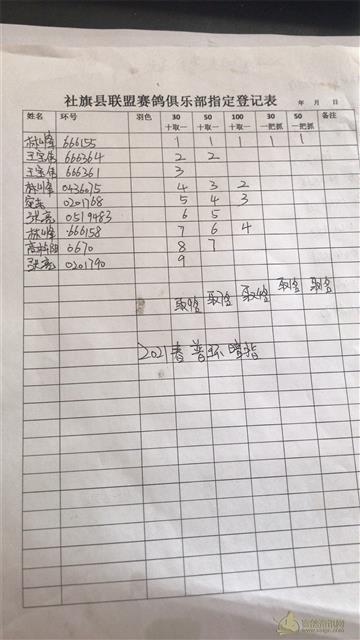 社旗县联盟赛鸽俱乐部指定登记表 年 月 日
姓名 环号 羽色 30 十取一 50 十取一 100 十取一 30 一把抓 50 一把抓 备注
林峰 666155 1 1 1 1 1
王宝伟 666364 2 2
王宝伟 666361 3
林峰 0436075 4 3 2
0201768 5 4 3
张亮 0519483 6 5
林峰 666158 7 6 4
0670 8 7
张亮 0201790 9
取9名 取7名 取4名 取1名 取1名
2021春普环暗指
信鸽资讯网